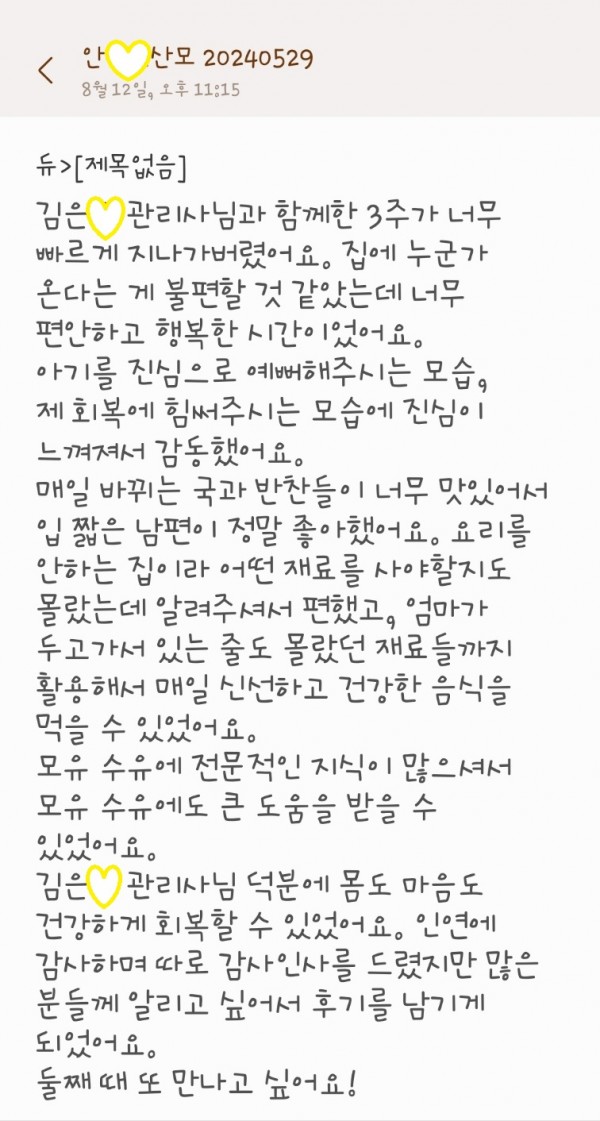 안 산모 20240529
8월 12일, 오후 11:15
듀>[제목없음]
김은 관리사님과 함께한 3주가 너무
빠르게 지나가버렸어요. 집에 누군가
온다는 게 불편할 것 같았는데 너무
편안하고 행복한 시간이었어요.
아기를 진심으로 예뻐해주시는 모습,
제 회복에 힘써주시는 모습에 진심이
느껴져서 감동했어요.
매일 바뀌는 국과 반찬들이 너무 맛있어서
입 짧은 남편이 정말 좋아했어요. 요리를
안하는 집이라 어떤 재료를 사야할지도
몰랐는데 알려주셔서 편했고, 엄마가
두고가서 있는 줄도 몰랐던 재료들까지
활용해서 매일 신선하고 건강한 음식을
먹을 수 있었어요.
모유 수유에 전문적인 지식이 많으셔서
모유 수유에도 큰 도움을 받을 수
있었어요.
김은 관리사님 덕분에 몸도 마음도
건강하게 회복할 수 있었어요. 인연에
감사하며 따로 감사인사를 드렸지만 많은
분들께 알리고 싶어서 후기를 남기게
되었어요.
둘째 때 또 만나고 싶어요!